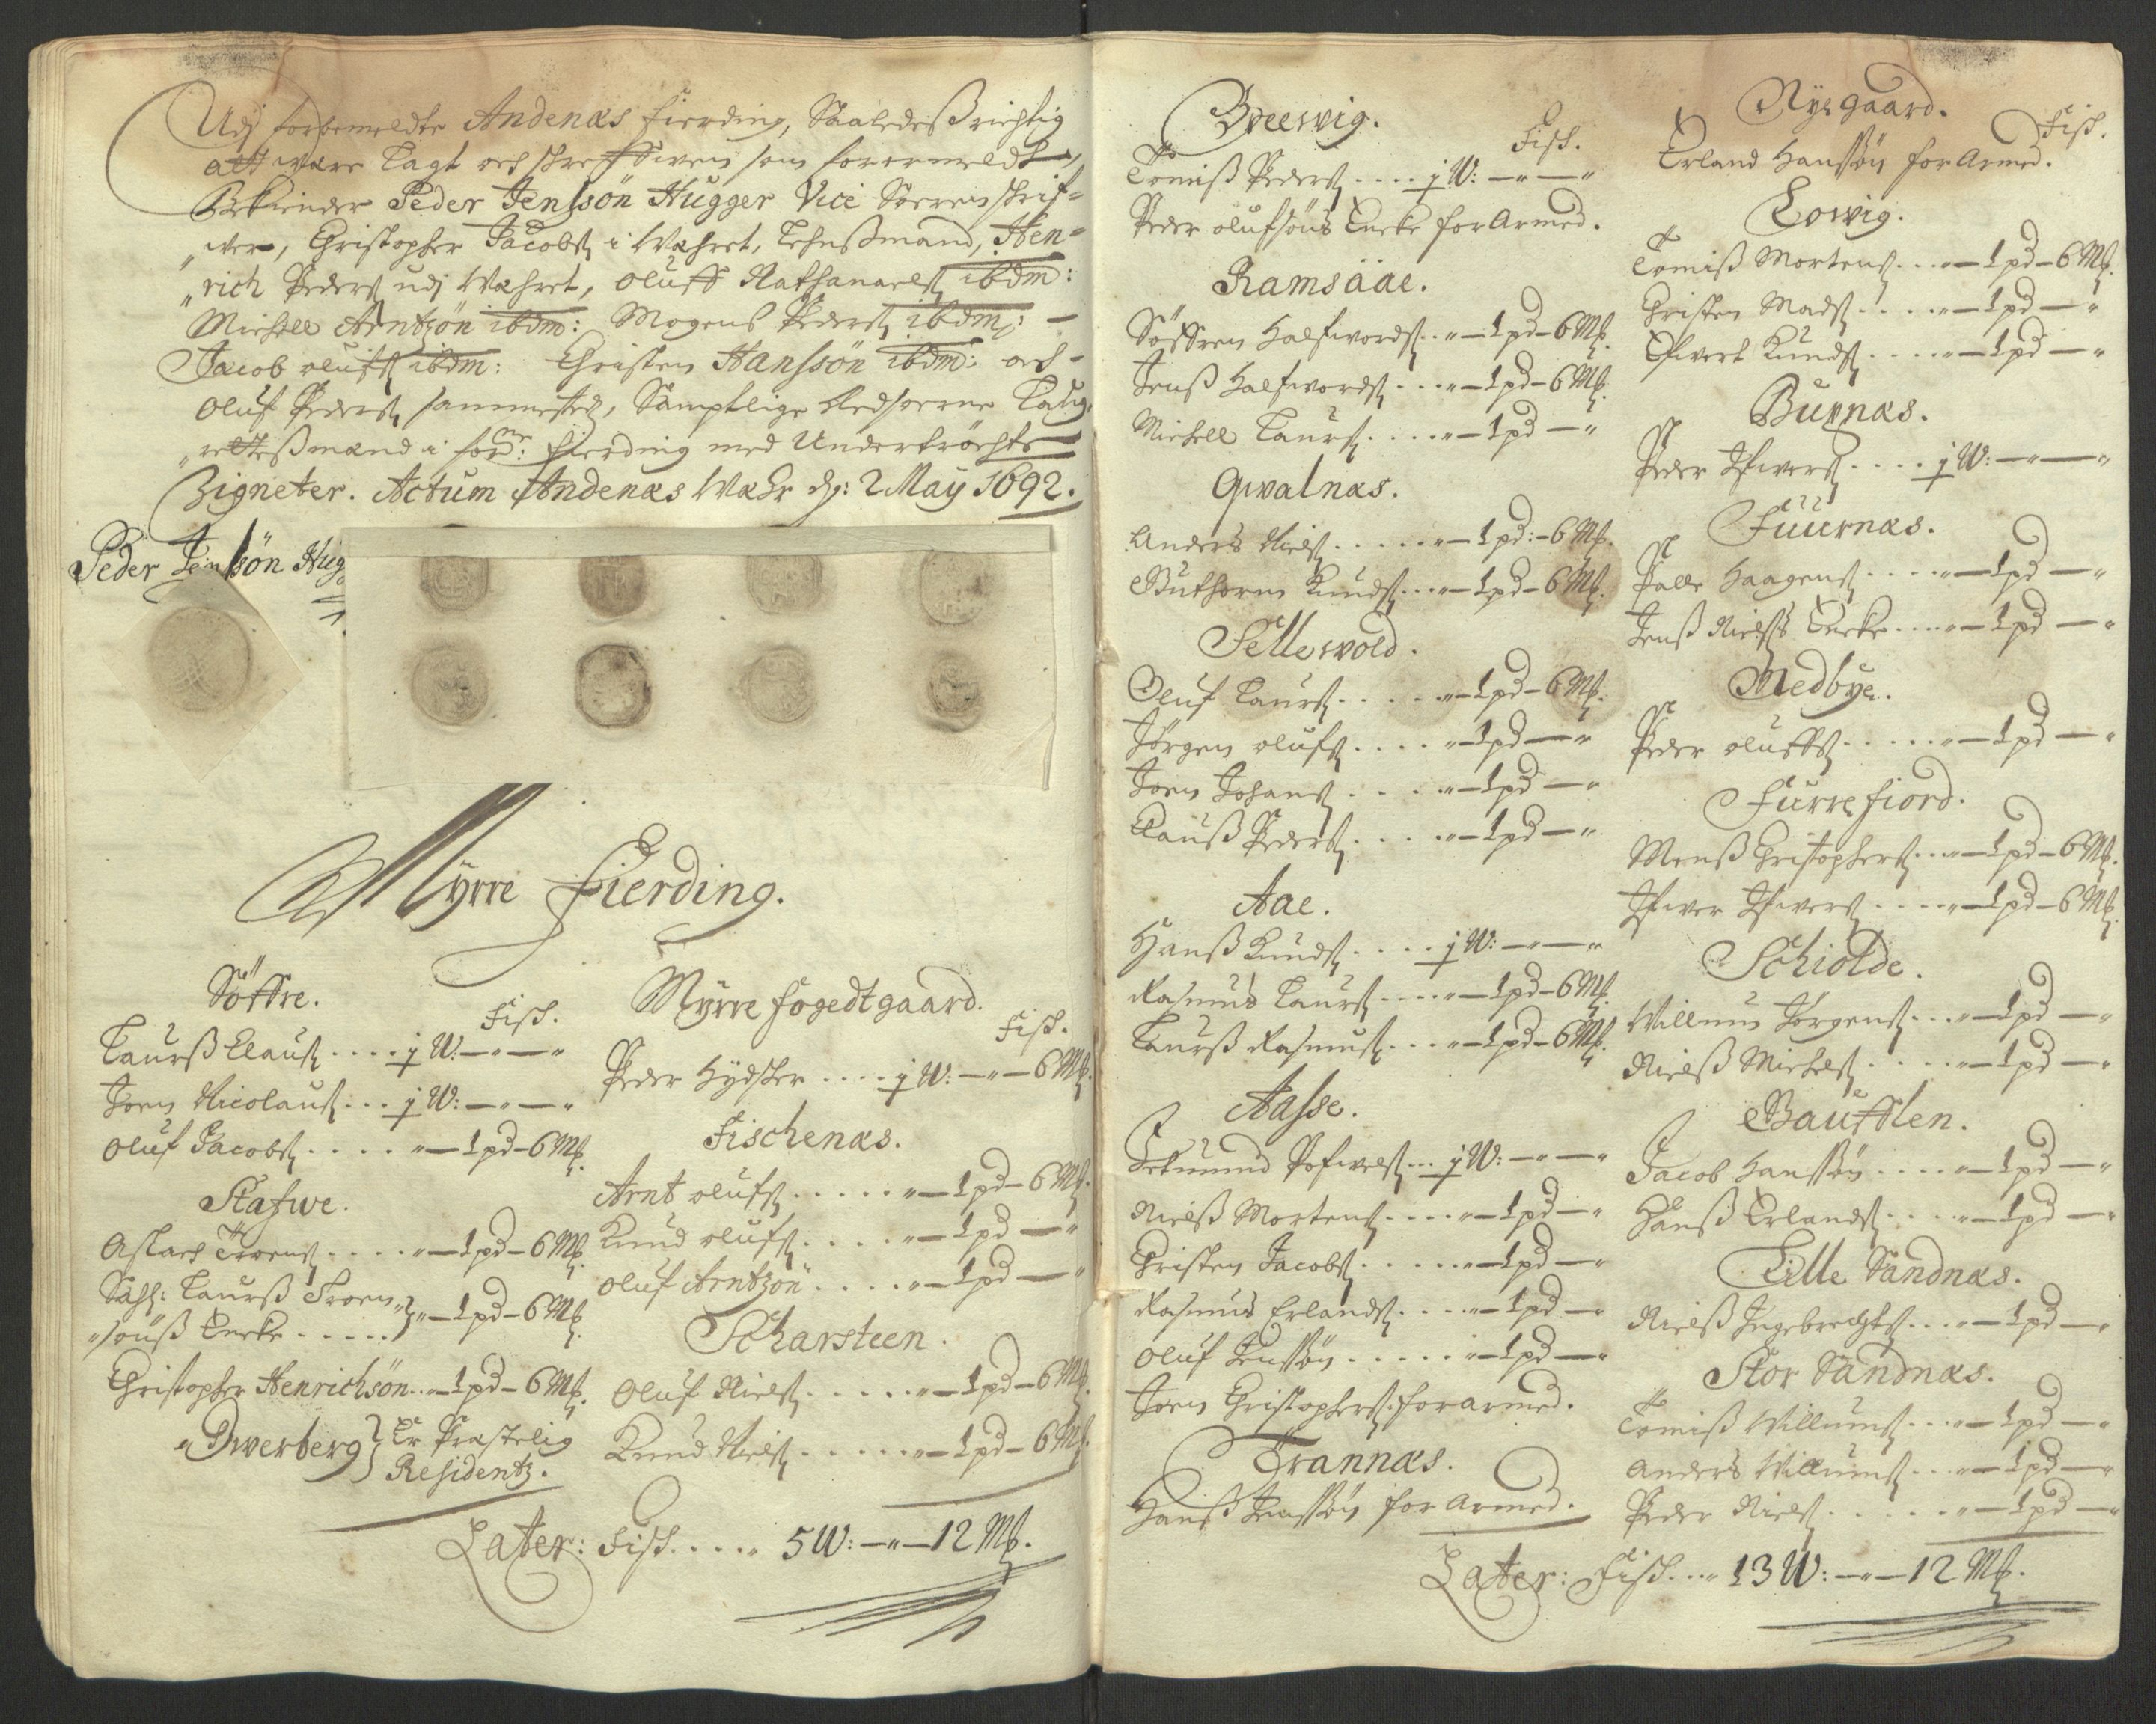 Udj forbemeldte Andenæs Fierding, Saaledeß rigtig
att være Tagt och schreffven som forormeldt,
Bekiender Peder Jenssön Hugger Vice Sorrenschrif-
wer, Christopher Jacobs i Wæhret, Lehnßmand, Hen-
rich Peders udj Wæhret, Oluff Nathanaels ibdm:
Michell Arntzön ibdm: Mogens Peders ibdm:
Jacob Oluffs ibdm: Christen Hanssön ibdm: och
Oluf Peders sammested, Samptlige Aedsoerne Laug-
retteßmænd i ford: Fierding med Undertröchte
Zigneter. Actum Andenæs Wæhr dj: 2 May 1692.
Peder Jenssön Hug
Myrre Fierding.
Söffre.
Fisch.
Laurß Clauß .... j W: — " — "
Joen Nicolauß ... j W: — " — "
Oluf Jacobs .... " — 1 pd — 6 Mk.
Stafwe.
Aslach Troens .... " — 1 pd — 6 Mk.
Sahl: Laurß Troen
söns Encke ..... " — 1 pd — 6 Mk.
Christopher Henrichsön .. " — 1 pd — 6 Mk.
Dwerberg Er Præstelig
Residentz.
Myrre Fogedtgaard.
Fisch.
Peder Hÿdster .... j W: — " — 6 Mk.
Fischenæs.
Arnt Olufs ..... " — 1 pd — 6 Mk.
Knud Olufs ..... " — 1 pd — "
Oluf Arntzön .... " — 1 pd — "
Scharsteen.
Oluf Niels ..... " — 1 pd — 6 Mk.
Knud Niels ..... " — 1 pd — 6 Mk.
Later: Fisch .... 5 W: — " — 12 Mk.
Breewig.
Fisch.
Tomiß Peders .... j W: — " — "
Peder Olufsöns Encke forarmed.
Ramsäae.
Söffren Halfwords .. " — 1 pd — 6 Mk.
Jenß Halfwords ... " — 1 pd — 6 Mk.
Michell Laurs .... " — 1 pd — "
Qwalnæs.
Anders Niels ..... " — 1 pd: — 6 Mk.
Guthorm Knuds ... " — 1 pd — 6 Mk.
Selleswold.
Oluf Laurs ..... " — 1 pd — 6 Mk.
Jörgen Olufs .... " — 1 pd — "
Joen Johans .... " — 1 pd — "
Clauß Peders .... " — 1 pd — "
Aae.
Hanß Knuds .... j W: — " — "
Rasmus Laurs .... " — 1 pd — 6 Mk.
Laurß Rasmus ... " — 1 pd — 6 Mk.
Aasse.
Setmund Pofwels ... j W: — " — "
Nielß Mortens .... " — 1 pd — "
Christen Jacobs ..... " — 1 pd — "
Rasmus Erlands .... " — 1 pd — "
Oluf Jenssön ..... " — 1 pd — "
Joen Christophers forarmed.
Trannæs.
Hanß Jenssön forarmed.
Nyegaard.
Fisch.
Erland Hanssön forarmed.
Loswig.
Tomiß Mortens ... " — 1 pd — 6 Mk.
Christen Mads .... " — 1 pd — "
Efwert Knuds .... " — 1 pd — "
Burnæs.
Peder Ifwers .... j W: — " — "
Füürnæs.
Palle Haagens .... " — 1 pd — "
Jenß Nielß Encke .... " — 1 pd — "
Medbÿe.
Peder Oluffs ..... " — 1 pd — "
Fürrefiord.
Monß Christophers ... " — 1 pd — 6 Mk.
Ifwer Ifwers .... " — 1 pd — 6 Mk.
Schiolde.
Willum Jörgens ... " — 1 pd — "
Nielß Michels .... " — 1 pd — "
Bauftlen.
Jacob Hanssön .... " — 1 pd — "
Hanß Erlands .... " — 1 pd — "
Lille Sandnæs.
Nielß Ingebrechts ... " — 1 pd — "
Stor Sandnæs.
Tomiß Willums ... " — 1 pd — "
Anders Willums ... " — 1 pd — "
Peder Niels ..... " — 1 pd — "
Later: Fisch ... 13 W: — " — 12 Mk.